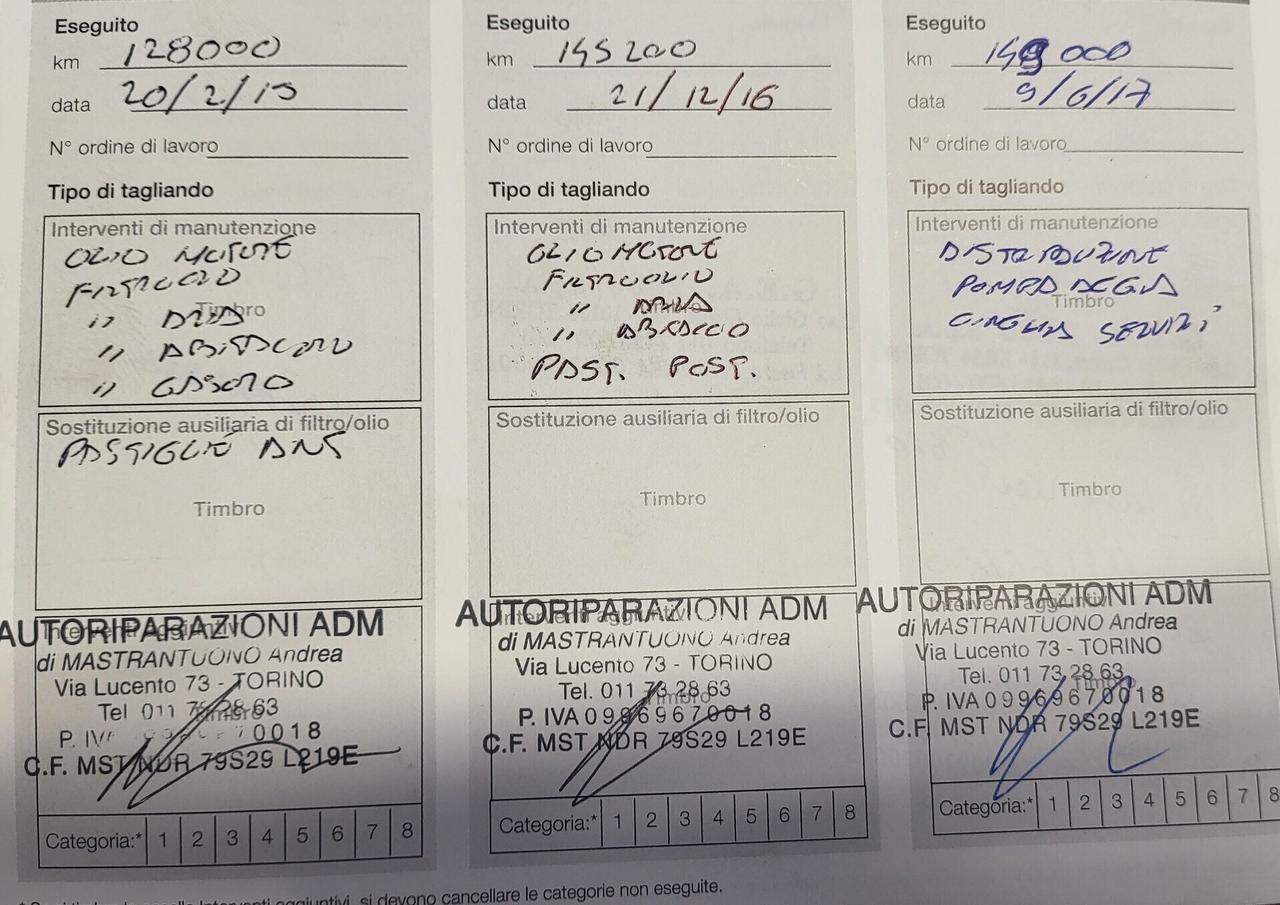 Eseguito
km 128000
data 20/2/15
N° ordine di lavoro
Tipo di tagliando
Interventi di manutenzione
OLIO MOTORE
FILTRO OLIO
Timbro
" ARIA
" ABITACOLO
" GASOLIO
Sostituzione ausiliaria di filtro/olio
PASTIGLIE ANT
Timbro
Interventi aggiuntivi
AUTORIPARAZIONI ADM
di MASTRANTUONO Andrea
Via Lucento 73 - TORINO
Tel 011 73 28 63
Timbro
P. IVA 0018
C.F. MST NDR 79S29 L219E
Categoria:* 1 2 3 4 5 6 7 8
Eseguito
km 145200
data 21/12/16
N° ordine di lavoro
Tipo di tagliando
Interventi di manutenzione
OLIO MOTORE
FILTRO OLIO
Timbro
" ARIA
" ABITACOLO
PAST. POST.
Sostituzione ausiliaria di filtro/olio
Timbro
Interventi aggiuntivi
AUTORIPARAZIONI ADM
di MASTRANTUONO Andrea
Via Lucento 73 - TORINO
Tel. 011 73 28 63
Timbro
P. IVA 09969670018
C.F. MST NDR 79S29 L219E
Categoria:* 1 2 3 4 5 6 7 8
Eseguito
km 149 000
data 9/6/17
N° ordine di lavoro
Tipo di tagliando
Interventi di manutenzione
DISTRIBUZIONE
POMPA ACQUA
Timbro
CINGHIA SERVIZI
Sostituzione ausiliaria di filtro/olio
Timbro
Interventi aggiuntivi
AUTORIPARAZIONI ADM
di MASTRANTUONO Andrea
Via Lucento 73 - TORINO
Tel. 011 73 28 63
Timbro
P. IVA 09969670018
C.F. MST NDR 79S29 L219E
Categoria:* 1 2 3 4 5 6 7 8
si devono cancellare le categorie non eseguite.